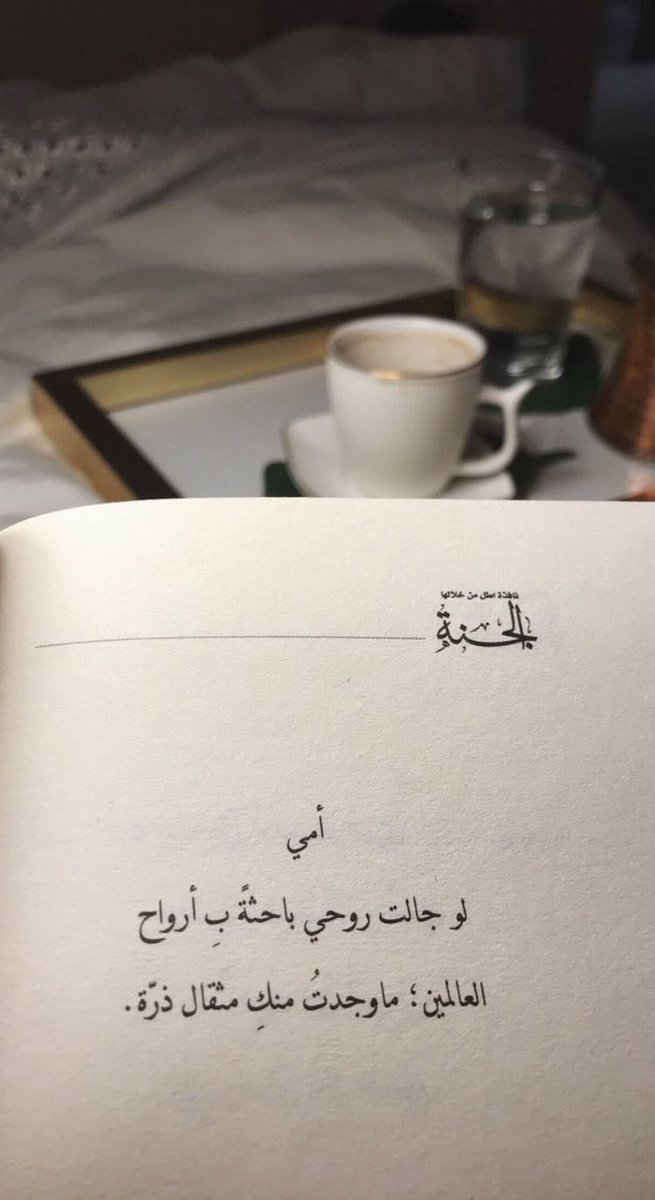 نافذة اطل من خلالها
الجنة
أمي
لو جالت روحي باحثةً بِ أرواح
العالمين؛ ماوجدتُ منكِ مثقال ذرّة.